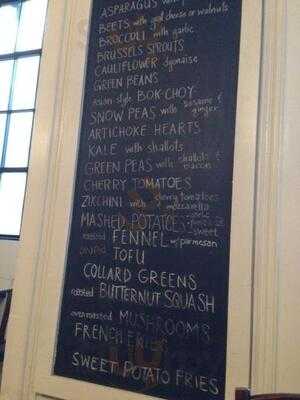 ASPARAGUS with
BEETS with goat cheese or walnuts
BROCCOLI with garlic
BRUSSELS SPROUTS
CAULIFLOWER dijonaise
GREEN BEANS
asian style BOK CHOY
SNOW PEAS with sesame & ginger
ARTICHOKE HEARTS
KALE with shallots
GREEN PEAS with shallots & bacon
CHERRY TOMATOES
ZUCCHINI with cherry tomatoes & mozzarella
MASHED POTATOES sweet
roasted FENNEL w/ parmesan
TOFU
COLLARD GREENS
roasted BUTTERNUT SQUASH
oven roasted MUSHROOMS
FRENCH FRIES
SWEET POTATO FRIES